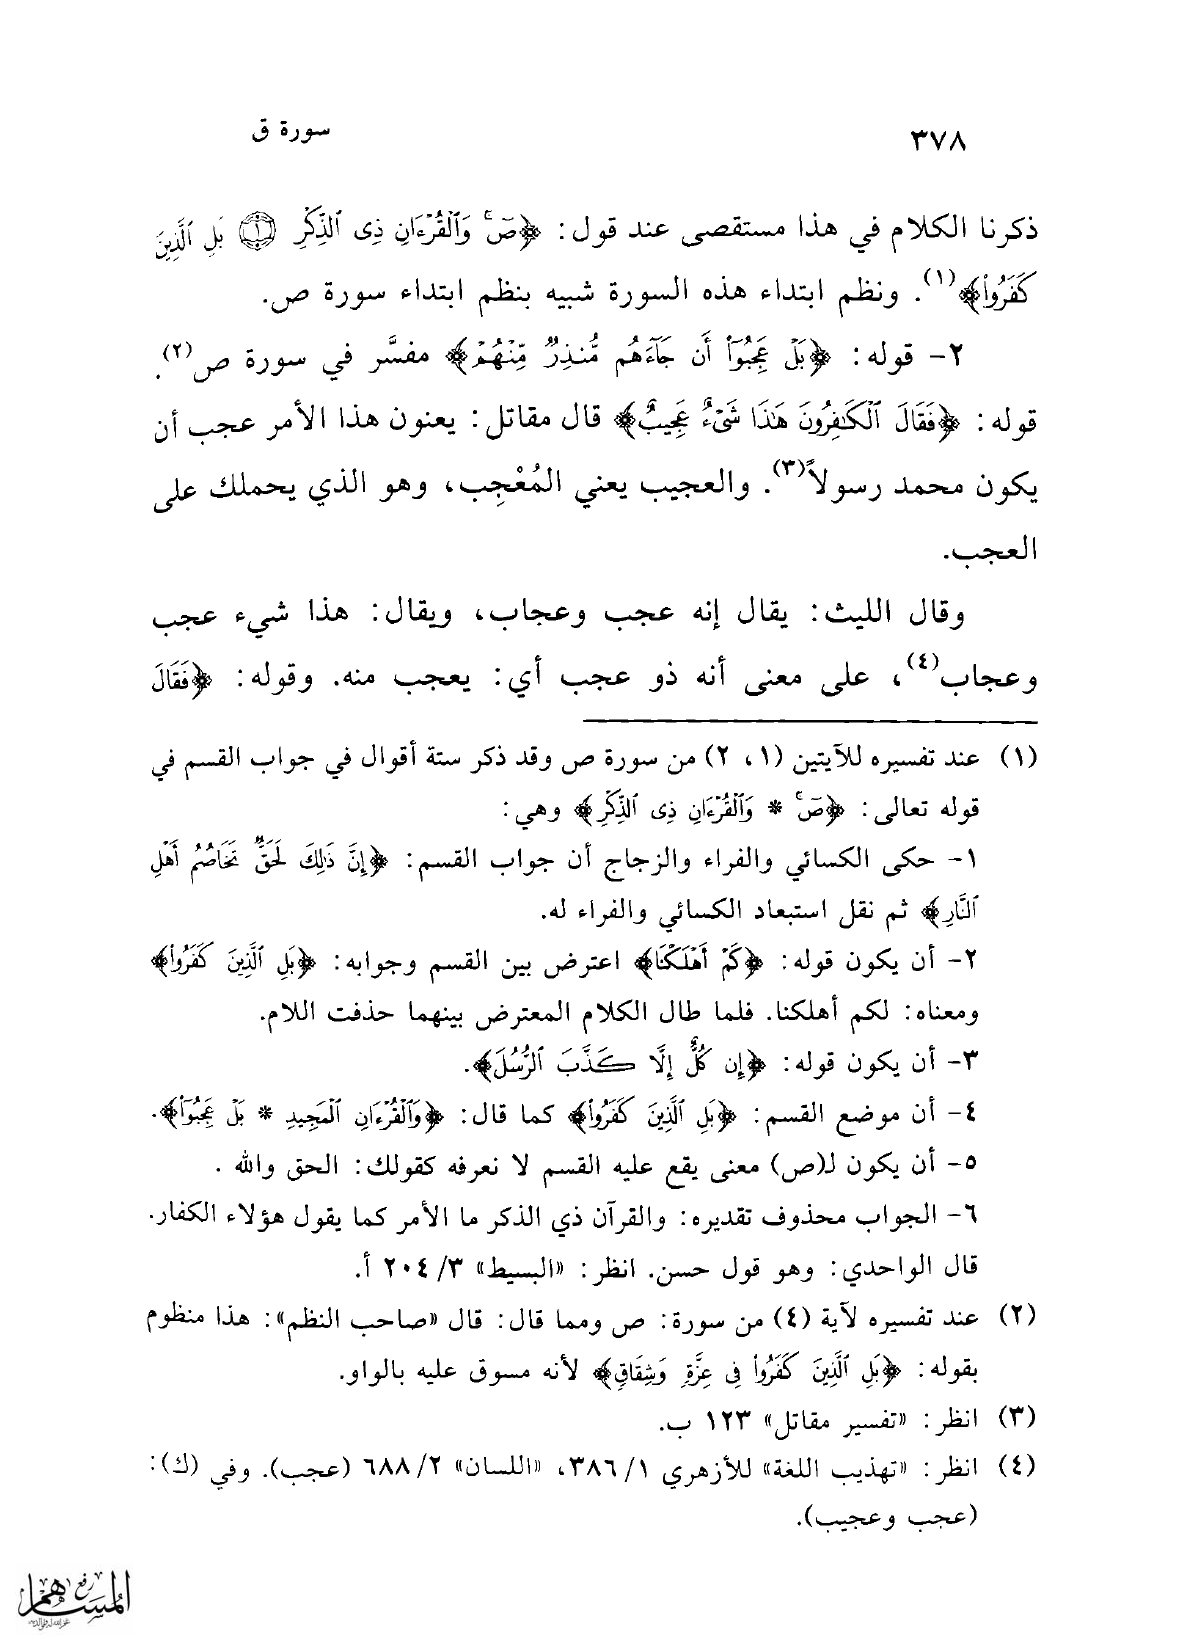 ٣٧٨
سورة ق
ذكرنا الكلام في هذا مستقصى عند قول: ﴿صٓۚ وَٱلۡقُرۡءَانِ ذِي ٱلذِّكۡرِ ١ بَلِ ٱلَّذِينَ
كَفَرُواْ﴾(١). ونظم ابتداء هذه السورة شبيه بنظم ابتداء سورة ص.
٢- قوله: ﴿بَلۡ عَجِبُوٓاْ أَن جَآءَهُم مُّنذِرٞ مِّنۡهُمۡ﴾ مفسَّر في سورة ص(٢).
قوله: ﴿فَقَالَ ٱلۡكَٰفِرُونَ هَٰذَا شَيۡءٌ عَجِيبٌ﴾ قال مقاتل: يعنون هذا الأمر عجب أن
يكون محمد رسولاً(٣). والعجيب يعني المُعْجِب، وهو الذي يحملك على
العجب.
وقال الليث: يقال إنه عجب وعجاب، ويقال: هذا شيء عجب
وعجاب(٤)، على معنى أنه ذو عجب أي: يعجب منه. وقوله: ﴿فَقَالَ
(١) عند تفسيره للآيتين (١، ٢) من سورة ص وقد ذكر ستة أقوال في جواب القسم في
قوله تعالى: ﴿صٓۚ * وَٱلۡقُرۡءَانِ ذِي ٱلذِّكۡرِ﴾ وهي:
١- حكى الكسائي والفراء والزجاج أن جواب القسم: ﴿إِنَّ ذَٰلِكَ لَحَقّٞ تَخَاصُمُ أَهۡلِ
ٱلنَّارِ﴾ ثم نقل استبعاد الكسائي والفراء له.
٢- أن يكون قوله: ﴿كَمۡ أَهۡلَكۡنَا﴾ اعترض بين القسم وجوابه: ﴿بَلِ ٱلَّذِينَ كَفَرُواْ﴾
ومعناه: لكم أهلكنا. فلما طال الكلام المعترض بينهما حذفت اللام.
٣- أن يكون قوله: ﴿إِن كُلٌّ إِلَّا كَذَّبَ ٱلرُّسُلَ﴾.
٤- أن موضع القسم: ﴿بَلِ ٱلَّذِينَ كَفَرُواْ﴾ كما قال: ﴿وَٱلۡقُرۡءَانِ ٱلۡمَجِيدِ * بَلۡ عَجِبُوٓاْ﴾.
٥- أن يكون لـ(ص) معنى يقع عليه القسم لا نعرفه كقولك: الحق والله .
٦- الجواب محذوف تقديره: والقرآن ذي الذكر ما الأمر كما يقول هؤلاء الكفار.
قال الواحدي: وهو قول حسن. انظر: «البسيط» ٣/ ٢٠٤ أ.
(٢) عند تفسيره لآية (٤) من سورة: ص ومما قال: قال «صاحب النظم»: هذا منظوم
بقوله: ﴿بَلِ ٱلَّذِينَ كَفَرُواْ فِي عِزَّةٖ وَشِقَاقٖ﴾ لأنه مسوق عليه بالواو.
(٣) انظر: «تفسير مقاتل» ١٢٣ ب.
(٤) انظر: «تهذيب اللغة» للأزهري ١/ ٣٨٦، «اللسان» ٢/ ٦٨٨ (عجب). وفي (ك):
(عجب وعجيب).